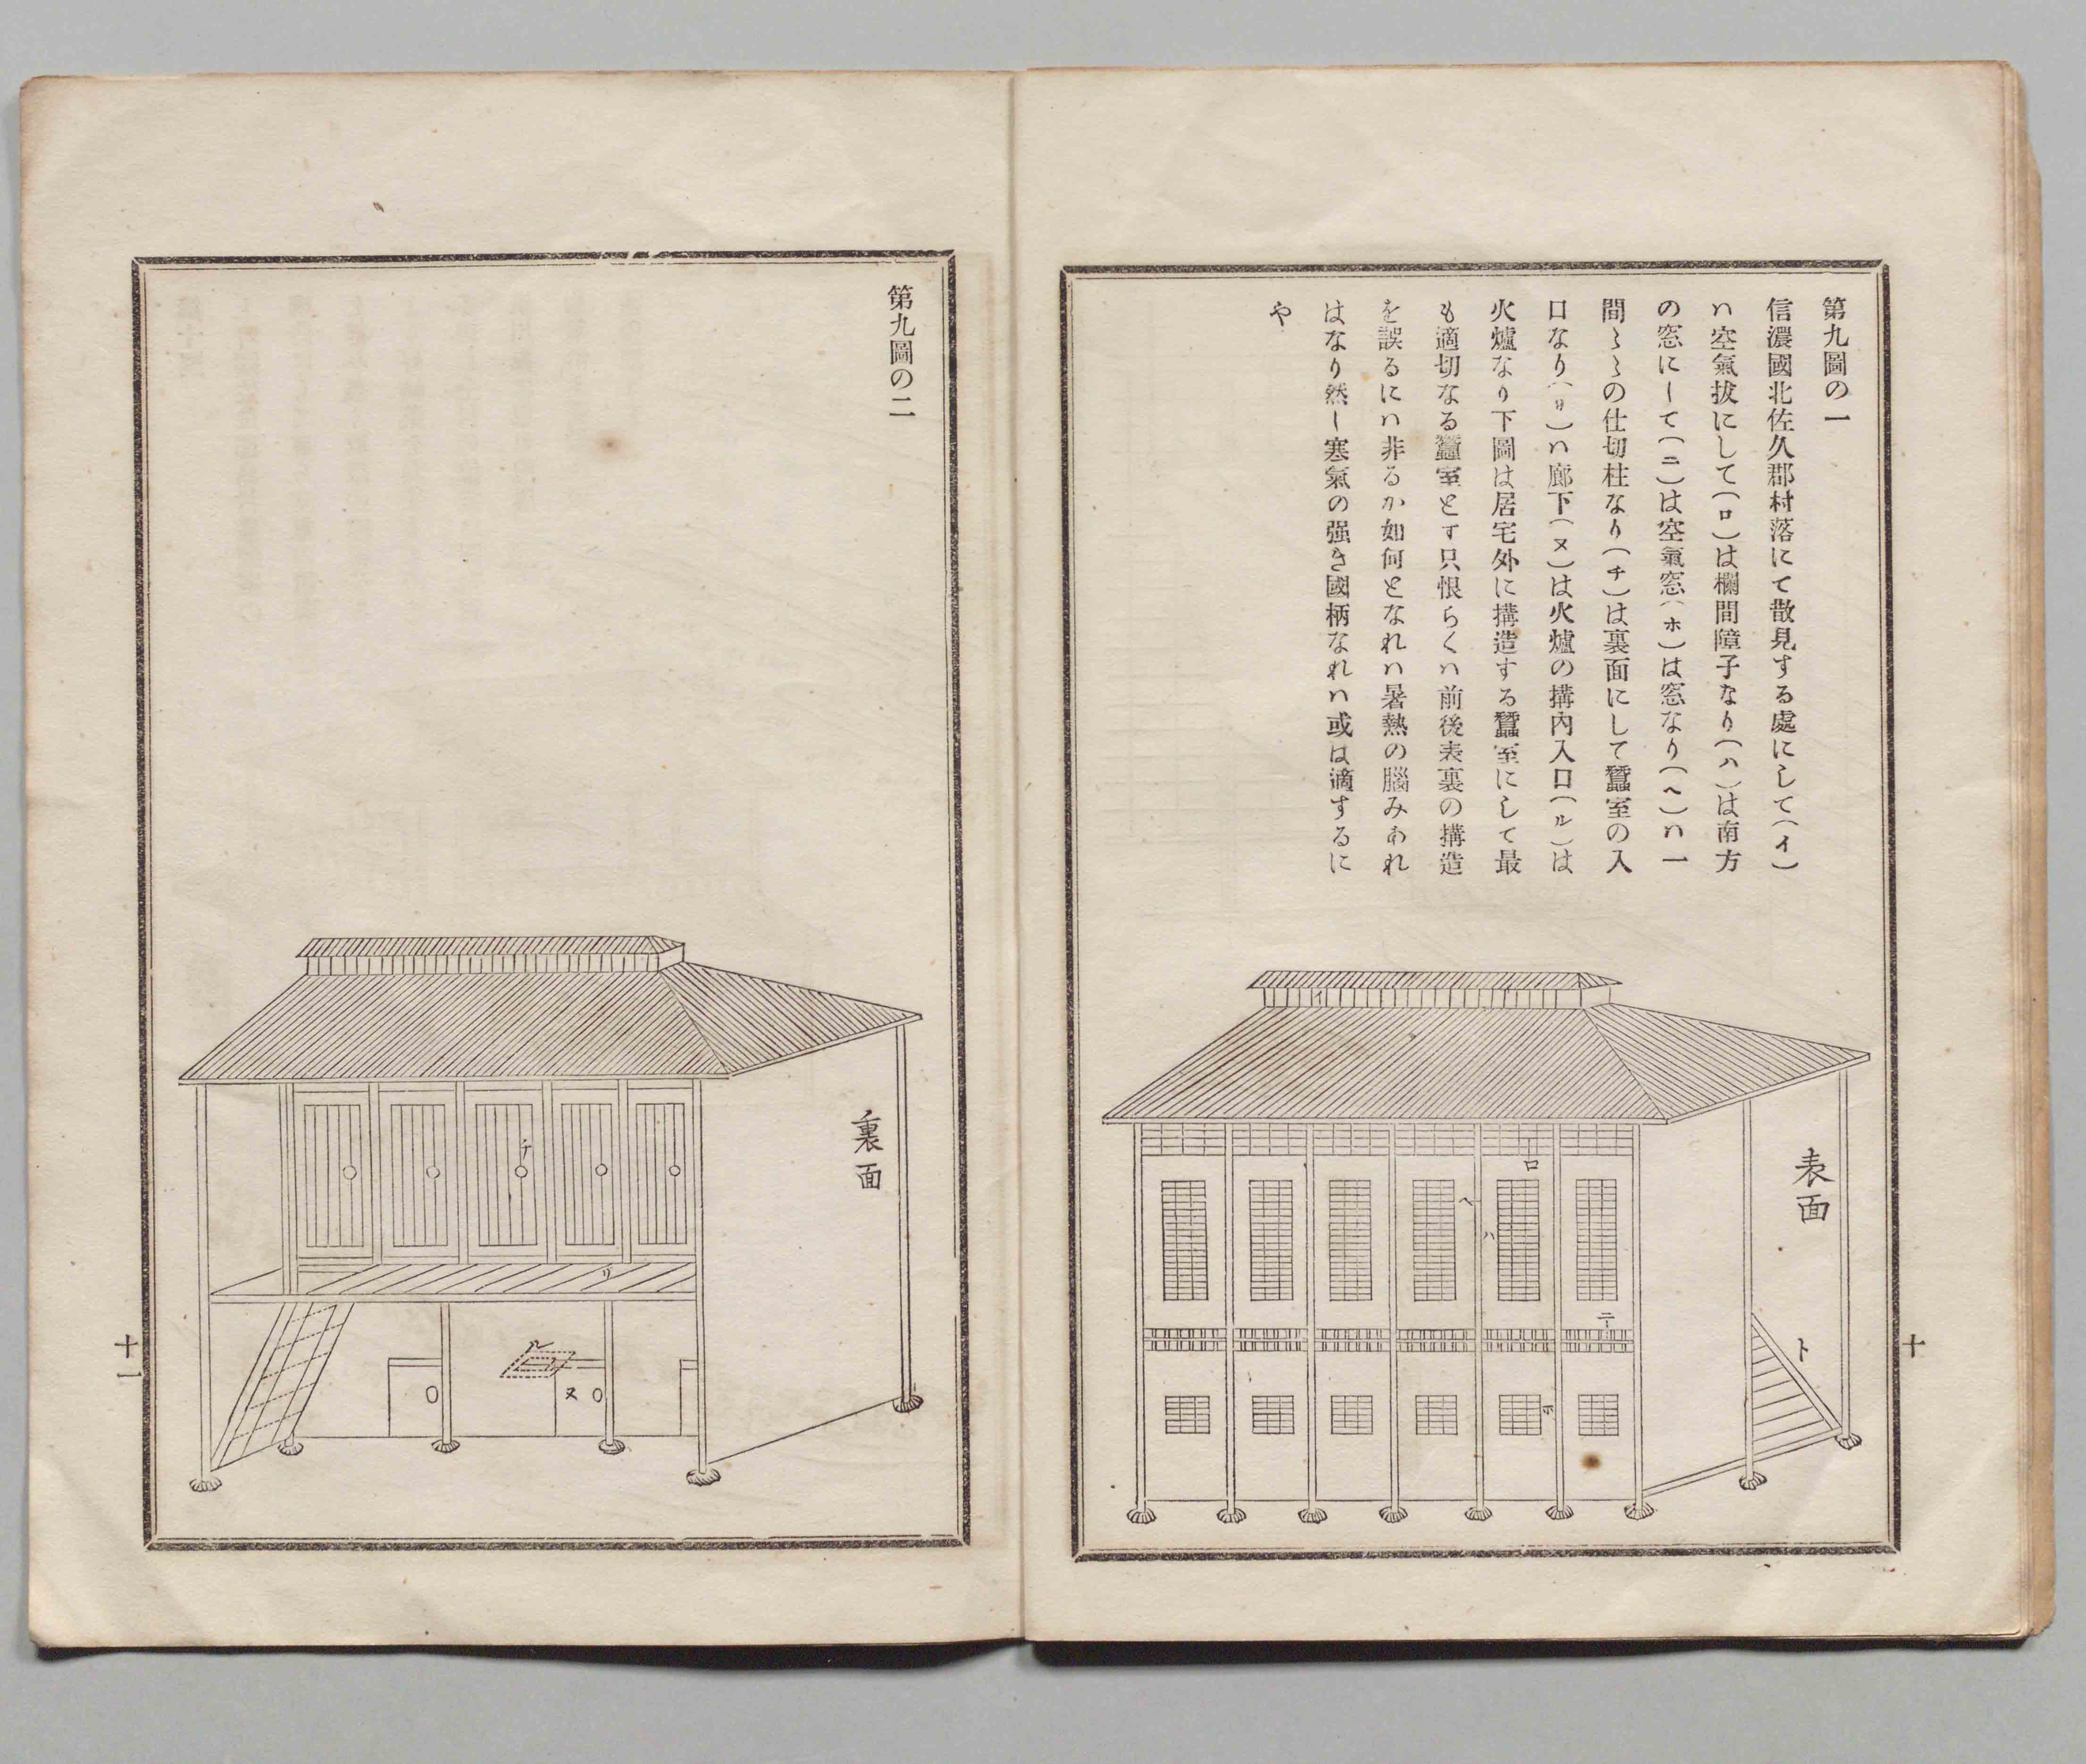 第九圖の一
信濃國北佐久郡村落にて散見する處にして(イ)
ハ空氣拔にして(ロ)は欄間障子なり(ハ)は南方
の窓にして(ニ)は空氣窓(ホ)は窓なり(ヘ)ハ一
間〻〻の仕切柱なり(チ)は裏面にして蠶室の入
口なり(リ)ハ廊下(ヌ)は火爐の搆內入口(ル)は
火爐なり下圖は居宅外に搆造する蠶室にして最
も適切なる蠶室とす只恨らくハ前後表裏の搆造
を誤るにハ非るか如何となれハ暑熱の腦みあれ
はなり然し寒氣の强き國柄なれハ或は適するに
や
表面
イ
ロ
ヘ
ハ
ニ
ホ
ト
十
第九圖の二
裏面
チ
リ
ル
ヌ
十一